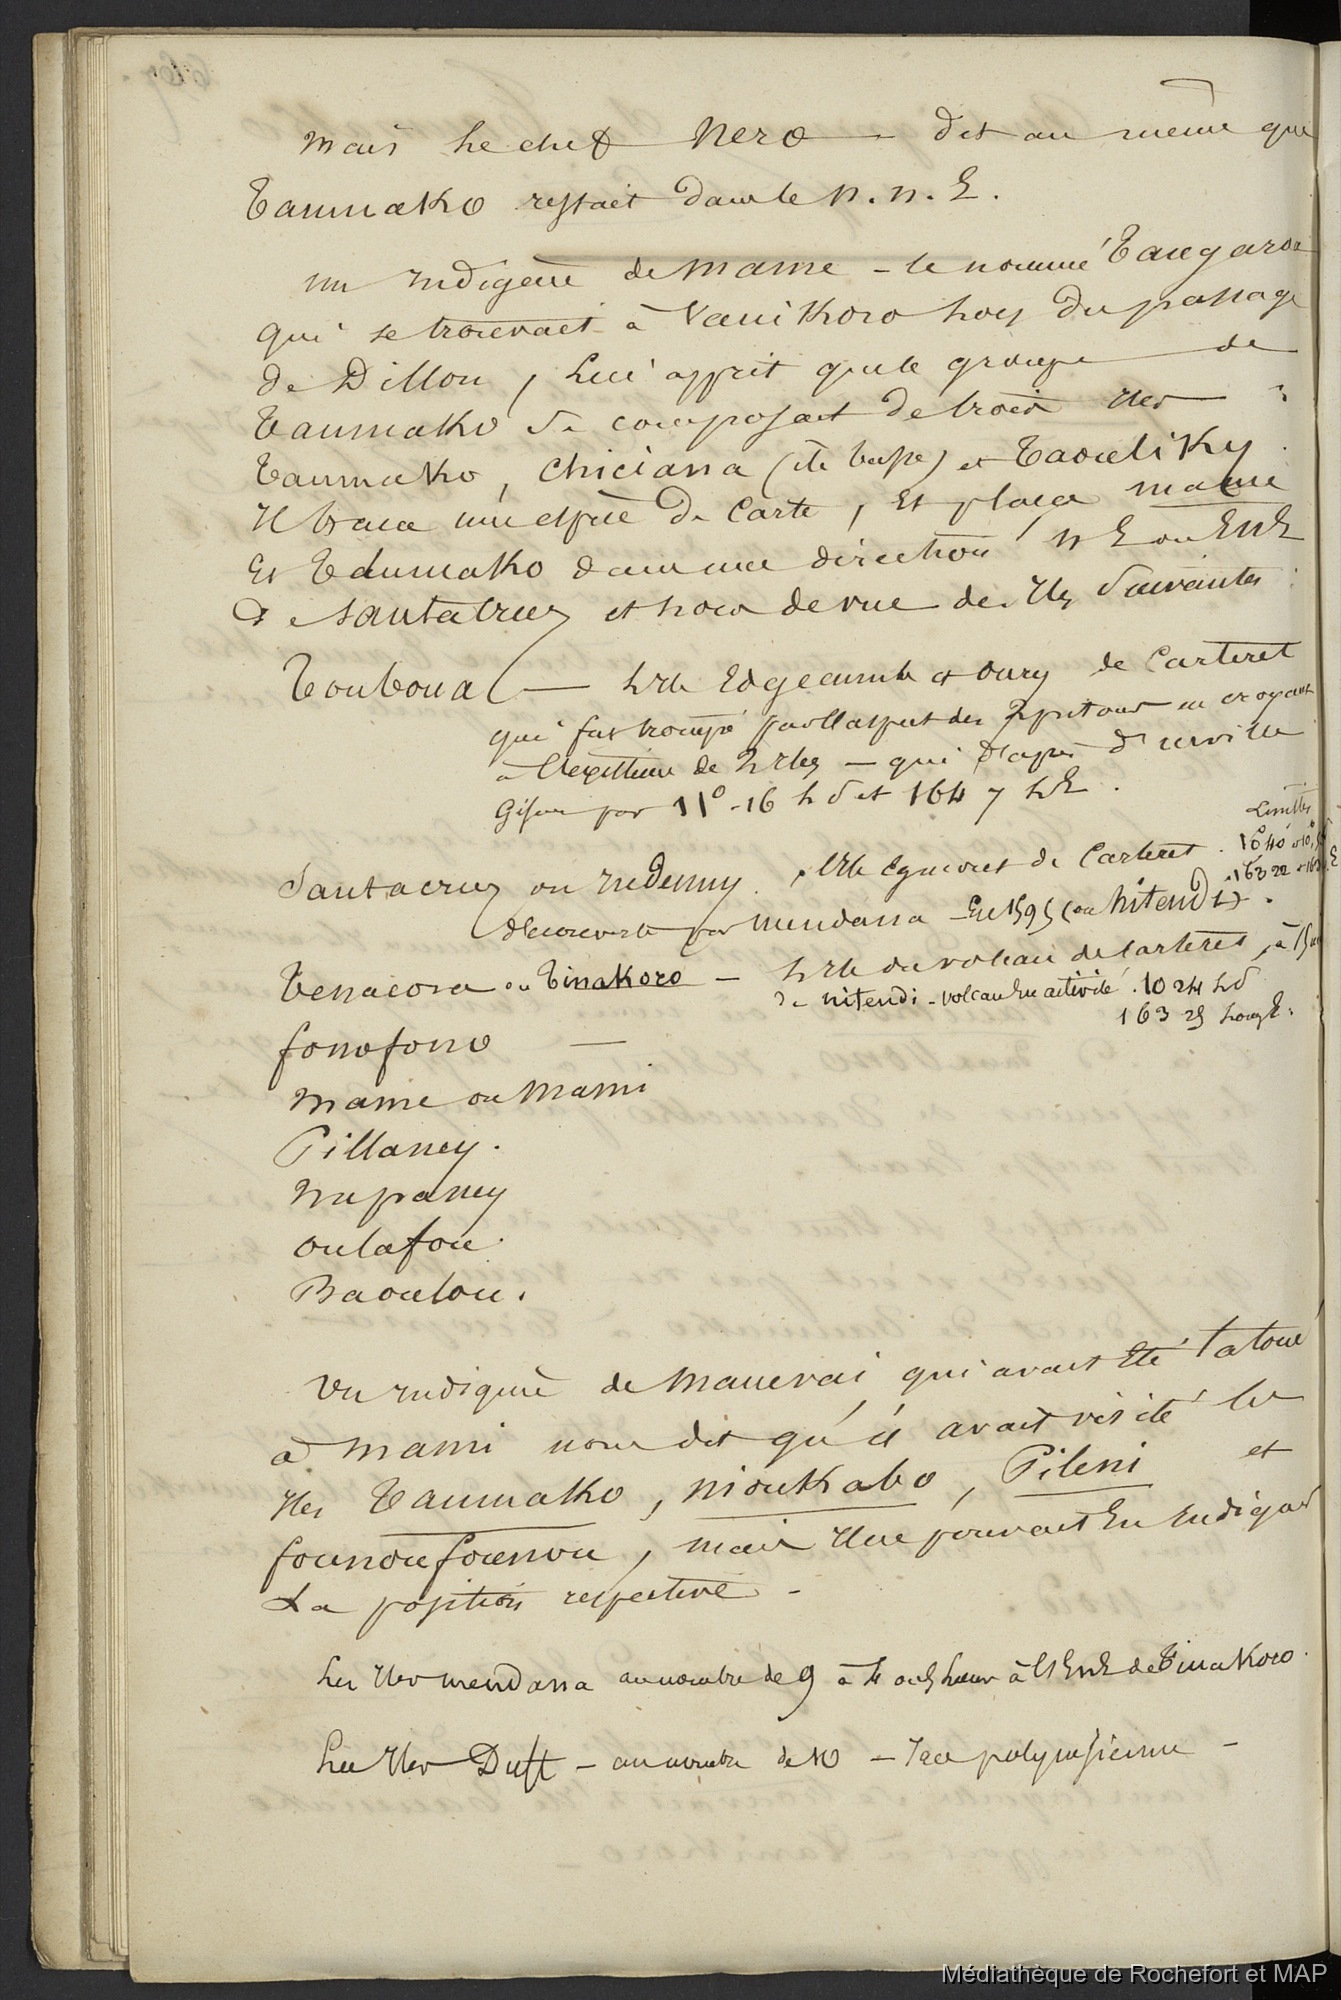 mais le chef Nero - dit au même que
Taumako restait dans le N. N. E.
un indigène de mame - le nommé Tangaroa
qui se trouvait à Vanikoro lors du passage
de Dillon, lui apprit que le groupe de
Taumako se composait de trois iles :
Taumako, Chiciana (ile basse) et Taouliky.
Il traca une espèce de Carte, et plaça mame
et Taumako dans une direction N E ou ENE
de Santa Cruz et hors de vue des iles suivantes :
Touboua — L'ile Edgecumb et oury de Carteret
qui fut trompé par l'aspect des pitons en croyant
à l'existence de 2 iles - qui d'après d'urville
Gisent par 11° - 16 L S et 164 7 L E.
Limites
Santacruz ou indenny. L'ile Egmont de Carteret. 1040
découverte par mendana - en 1595 (ou Nitendi).
163 22
Tenacora ou Tinakoro - L'ile du volcan de Carteret, à 15
de nitendi - volcan en activité. 10 24 L S
163 25 Long E.
fonofono —
mame ou mami
Pillaney.
nupaney
oulafou.
Baoulou.
Un indigène de manevai qui avait été tatoué
à mami nous dit qu'il avait visité les
iles Taumako, nioukabo, Pileni et
founoufounou, mais il ne pouvait en indiquer
La position respective -
Les iles mendana au nombre de 9 à 4 ou 5 lieues à l'ENE de Tinakoro.
Les iles Duff - au nombre de 10 - race polynésienne -
Médiathèque de Rochefort et MAP